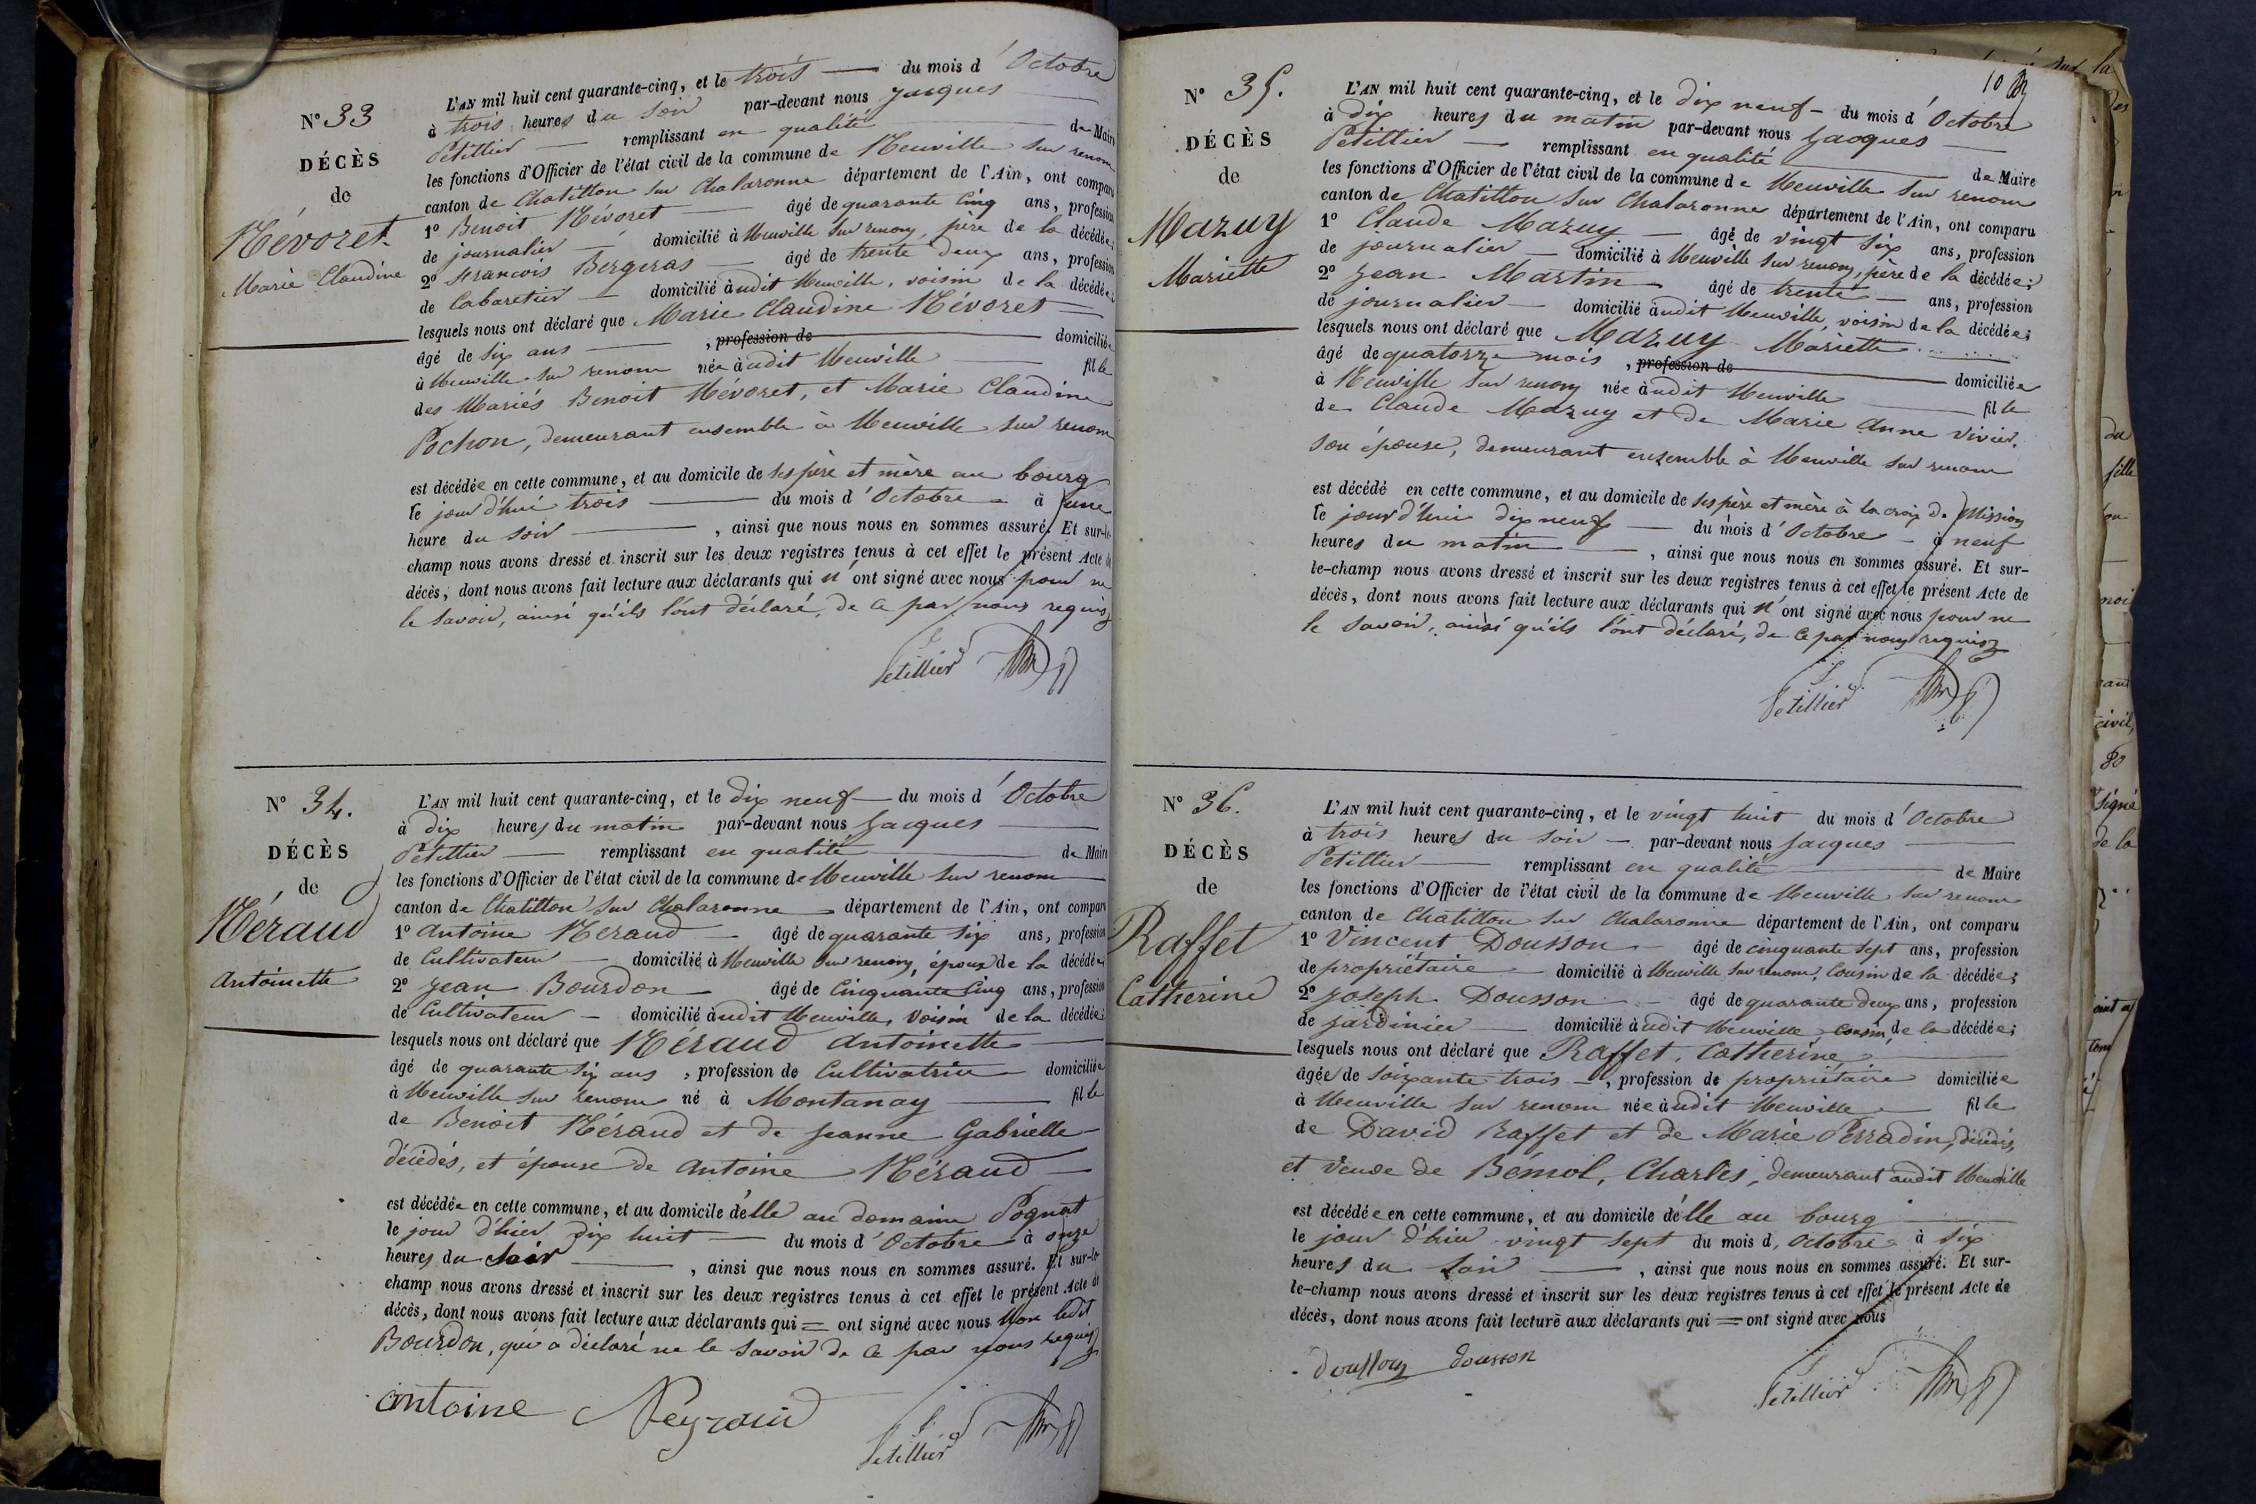 N° 33
DÉCÈS
de
Névoret
Marie Claudine
L'AN mil huit cent quarante-cinq, et le trois du mois d'Octobre
à trois heures du soir par-devant nous Jacques
Petillier remplissant en qualité de Maire
les fonctions d'Officier de l'état civil de la commune de Neuville sur renom
canton de Chatillon sur Chalaronne département de l'Ain, ont comparu
1° Benoit Névoret âgé de quarante cinq ans, profession
de journalier domicilié à Neuville sur renom, père de la décédée;
2° francois Bergeras âgé de trente deux ans, profession
de Cabaretier domicilié audit Neuville, voisin de la décédée;
lesquels nous ont déclaré que Marie Claudine Névoret
âgé de six ans , profession de domiciliée
à Neuville sur renom née audit Neuville fille
des Mariés Benoit Névoret, et Marie Claudine
Pochon, demeurant ensemble à Neuville sur renom
est décédée en cette commune, et au domicile de ses père et mère au bourg
le jour d'hui trois du mois d'Octobre à une
heure du soir , ainsi que nous nous en sommes assuré. Et sur-le-
champ nous avons dressé et inscrit sur les deux registres tenus à cet effet le présent Acte de
décès, dont nous avons fait lecture aux déclarants qui n'ont signé avec nous pour ne
le savoir, ainsi qu'ils l'ont déclaré, de ce par nous requis
Petillier
N° 34.
DÉCÈS
de
Néraud
Antoinette
L'AN mil huit cent quarante-cinq, et le dix neuf du mois d'Octobre
à dix heures du matin par-devant nous Jacques
Petillier remplissant en qualité de Maire
les fonctions d'Officier de l'état civil de la commune de Neuville sur renom
canton de Chatillon sur Chalaronne département de l'Ain, ont comparu
1° antoine Néraud âgé de quarante six ans, profession
de Cultivateur domicilié à Neuville sur renom, époux de la décédée;
2° Jean Bourdon âgé de Cinquante cinq ans, profession
de Cultivateur domicilié audit Neuville, voisin de la décédée;
lesquels nous ont déclaré que Néraud antoinette
âgé de quarante six ans , profession de Cultivatrice domiciliée
à Neuville sur renom né à Montanay fille
de Benoit Néraud et de Jeanne Gabrielle
décédés, et épouse de antoine Néraud
est décédée en cette commune, et au domicile d'elle au domaine Pognat
le jour d'hier dix huit du mois d'Octobre à onze
heures du soir , ainsi que nous nous en sommes assuré. Et sur-le-
champ nous avons dressé et inscrit sur les deux registres tenus à cet effet le présent Acte de
décès, dont nous avons fait lecture aux déclarants qui = ont signé avec nous Non ledit
Bourdon, qui a déclaré ne le savoir de ce par nous requis
antoine Neyraud
Petillier
10
N° 35.
DÉCÈS
de
Mazuy
Mariette
L'AN mil huit cent quarante-cinq, et le dix neuf du mois d'Octobre
à dix heures du matin par-devant nous Jacques
Petillier remplissant en qualité de Maire
les fonctions d'Officier de l'état civil de la commune de Neuville sur renom
canton de Chatillon sur Chalaronne département de l'Ain, ont comparu
1° Claude Mazuy âgé de vingt six ans, profession
de journalier domicilié à Neuville sur renom, père de la décédée;
2° Jean Martin âgé de trente ans, profession
de journalier domicilié audit Neuville, voisin de la décédée;
lesquels nous ont déclaré que Mazuy Mariette
âgé de quatorze mois , profession de domiciliée
à Neuville sur renom née audit Neuville fille
de Claude Mazuy et de Marie Anne Vivier,
son épouse, demeurant ensemble à Neuville sur renom
est décédé en cette commune, et au domicile de ses père et mère à la croix de Mission
le jour d'hui dix neuf du mois d'Octobre à neuf
heures du matin , ainsi que nous nous en sommes assuré. Et sur-
le-champ nous avons dressé et inscrit sur les deux registres tenus à cet effet le présent Acte de
décès, dont nous avons fait lecture aux déclarants qui n'ont signé avec nous pour ne
le savoir, ainsi qu'ils l'ont déclaré, de ce par nous requis
Petillier
N° 36.
DÉCÈS
de
Raffet
Catherine
L'AN mil huit cent quarante-cinq, et le vingt huit du mois d'Octobre
à trois heures du soir par-devant nous Jacques
Petillier remplissant en qualité de Maire
les fonctions d'Officier de l'état civil de la commune de Neuville sur renom
canton de Chatillon sur Chalaronne département de l'Ain, ont comparu
1° Vincent Dousson âgé de cinquante sept ans, profession
de propriétaire domicilié à Neuville sur renom, Cousin de la décédée;
2° Joseph Dousson âgé de quarante deux ans, profession
de jardinier domicilié audit Neuville, cousin, de la décédée;
lesquels nous ont déclaré que Raffet, Catherine
âgée de soixante trois , profession de propriétaire domiciliée
à Neuville sur renom née audit Neuville fille
de David Raffet et de Marie Perradin, décédés,
et veuve de Bémol, Charles, demeurant audit Neuville
est décédée en cette commune, et au domicile d'elle au bourg
le jour d'hier vingt sept du mois d'Octobre à six
heures du soir , ainsi que nous nous en sommes assuré. Et sur-
le-champ nous avons dressé et inscrit sur les deux registres tenus à cet effet le présent Acte de
décès, dont nous avons fait lecture aux déclarants qui = ont signé avec nous
dousson dousson
Petillier